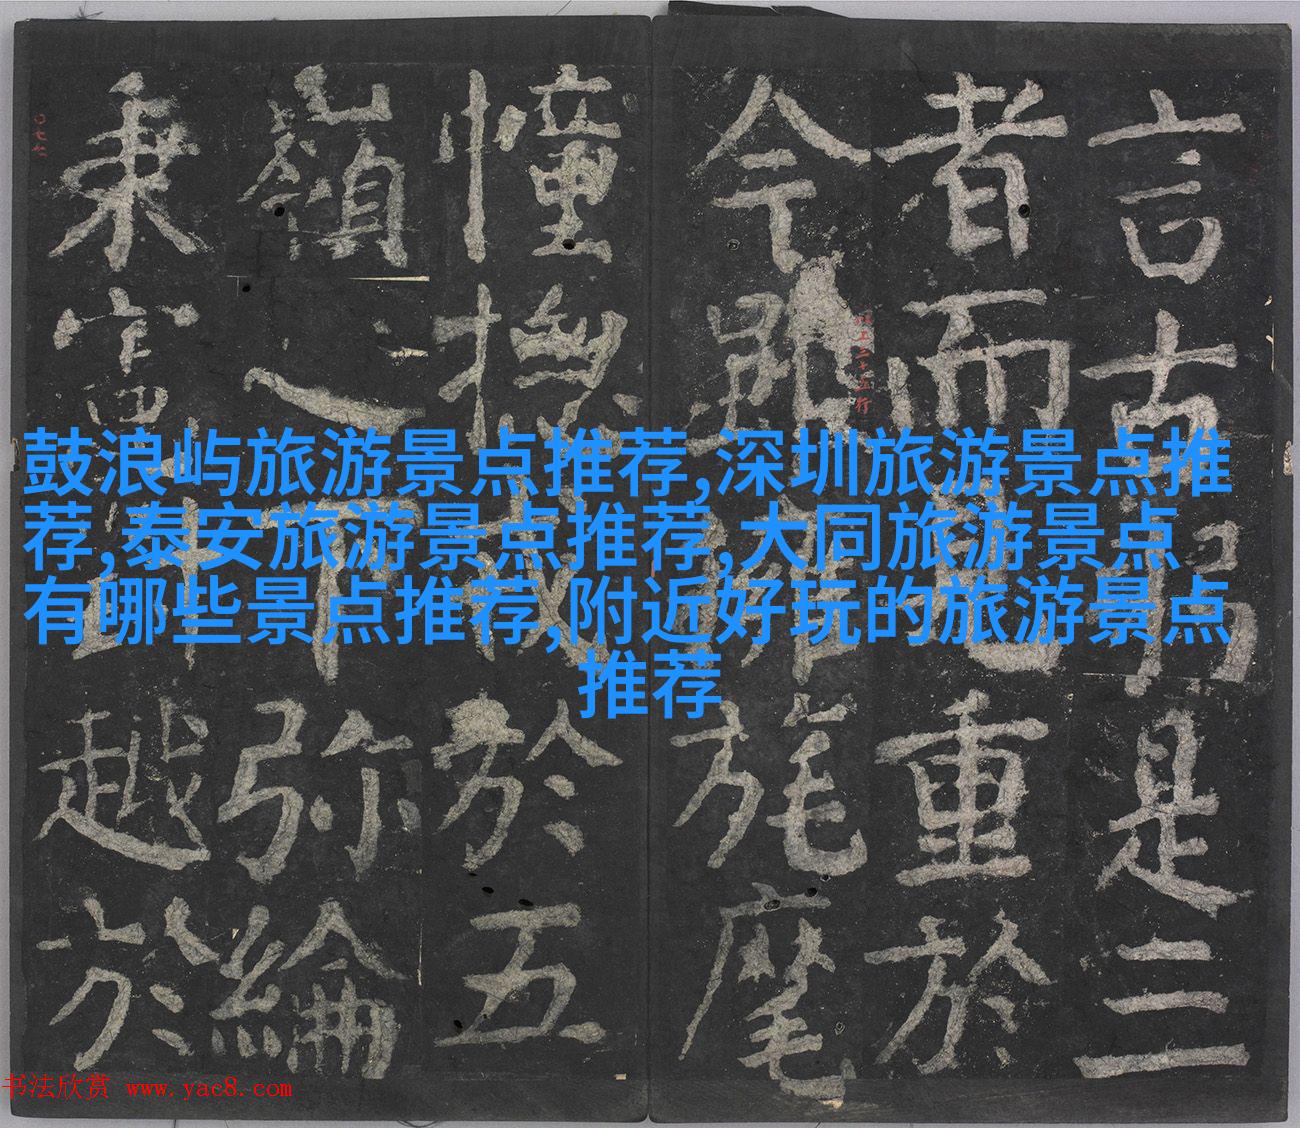 鼓浪屿旅游景点推荐,深圳旅游景点推
荐,泰安旅游景点推荐,大同旅游景点
有哪些景点推荐,附近好玩的旅游景点
推荐
言古是三
者而重於
今旄麾
憧撫於五
嶺之下弥綸
秉富越於
书法欣赏 www.yac8.com